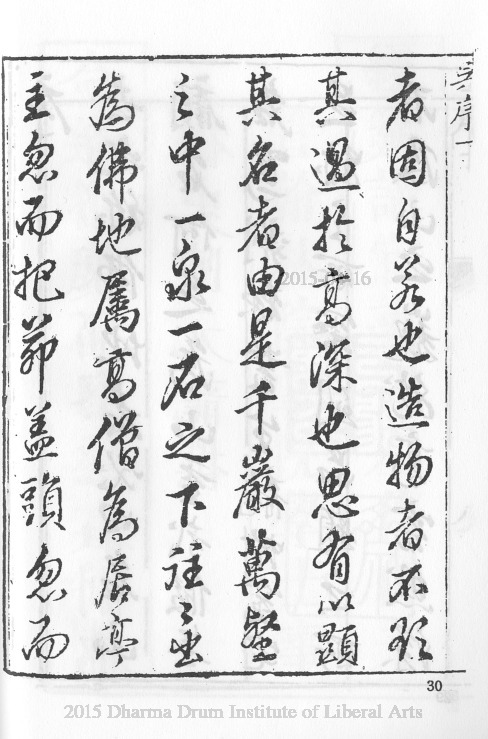 吳序一
者固自若也造物者不欲
其過於高深也思有以顯
其名者由是千巖萬壑
之中一泉一石之下往〻出
為佛地屬高僧為居亭
主忽而把茆蓋頭忽而
30
2015-06-16
2015 Dharma Drum Institute of Liberal Arts